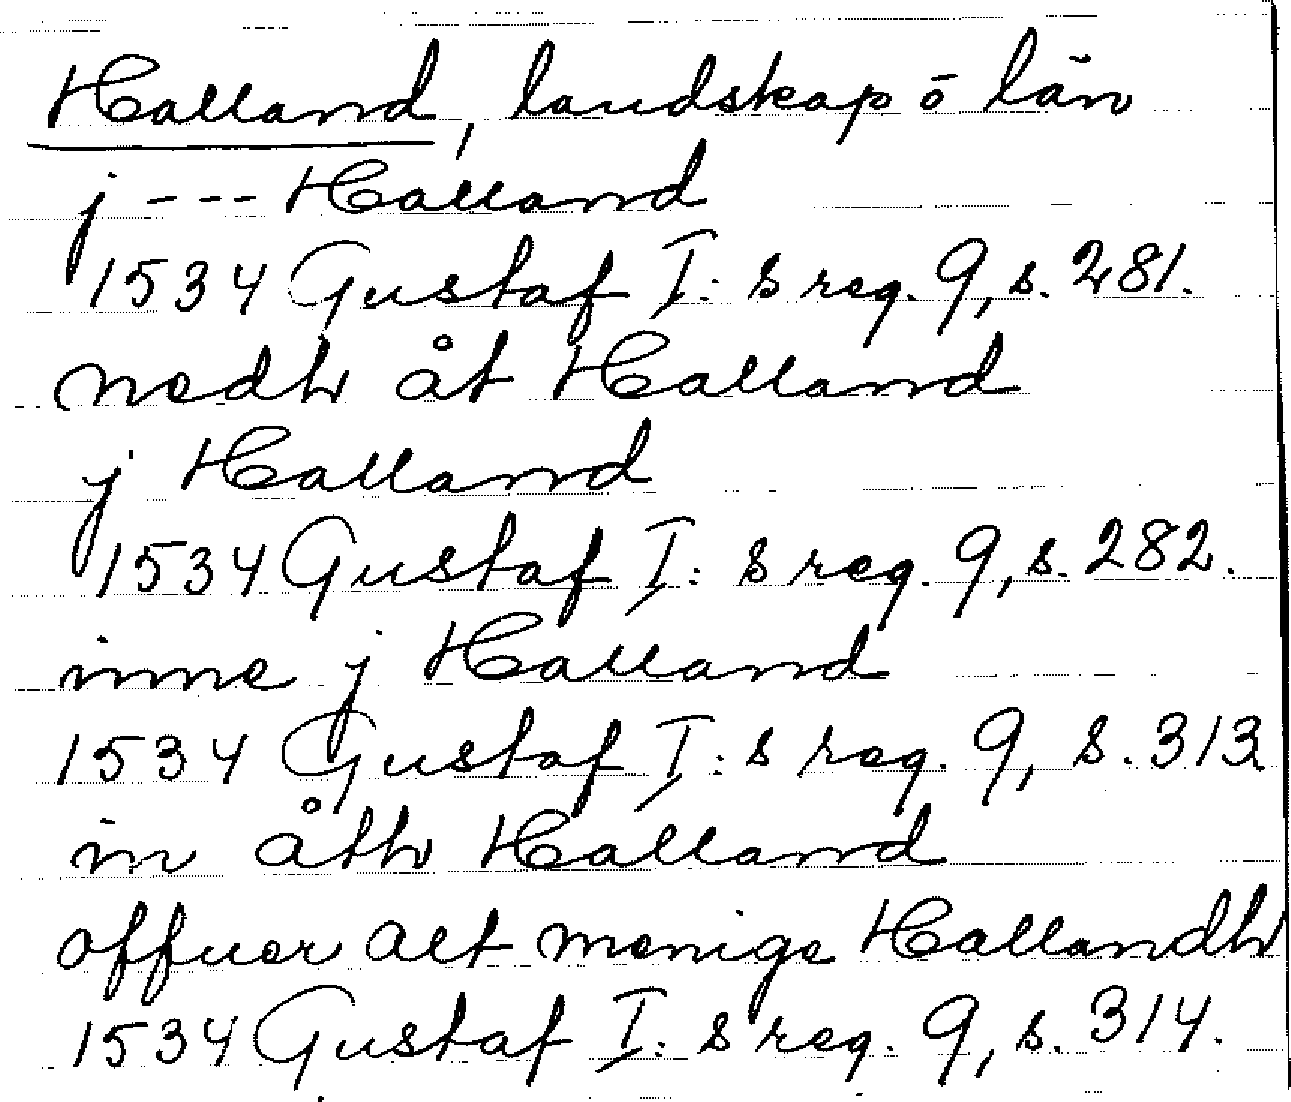 Halland, landskap ō län
j --- Halland
1534 Gustaf I: s reg. 9, s. 281.
nedh åt Halland
j Halland
1534 Gustaf I: s reg. 9, s. 282.
inne j Halland
1534 Gustaf I: s reg. 9, s. 313
in åth Halland
offuer alt menige Hallandh
1534 Gustaf I: s reg. 9, s. 314.